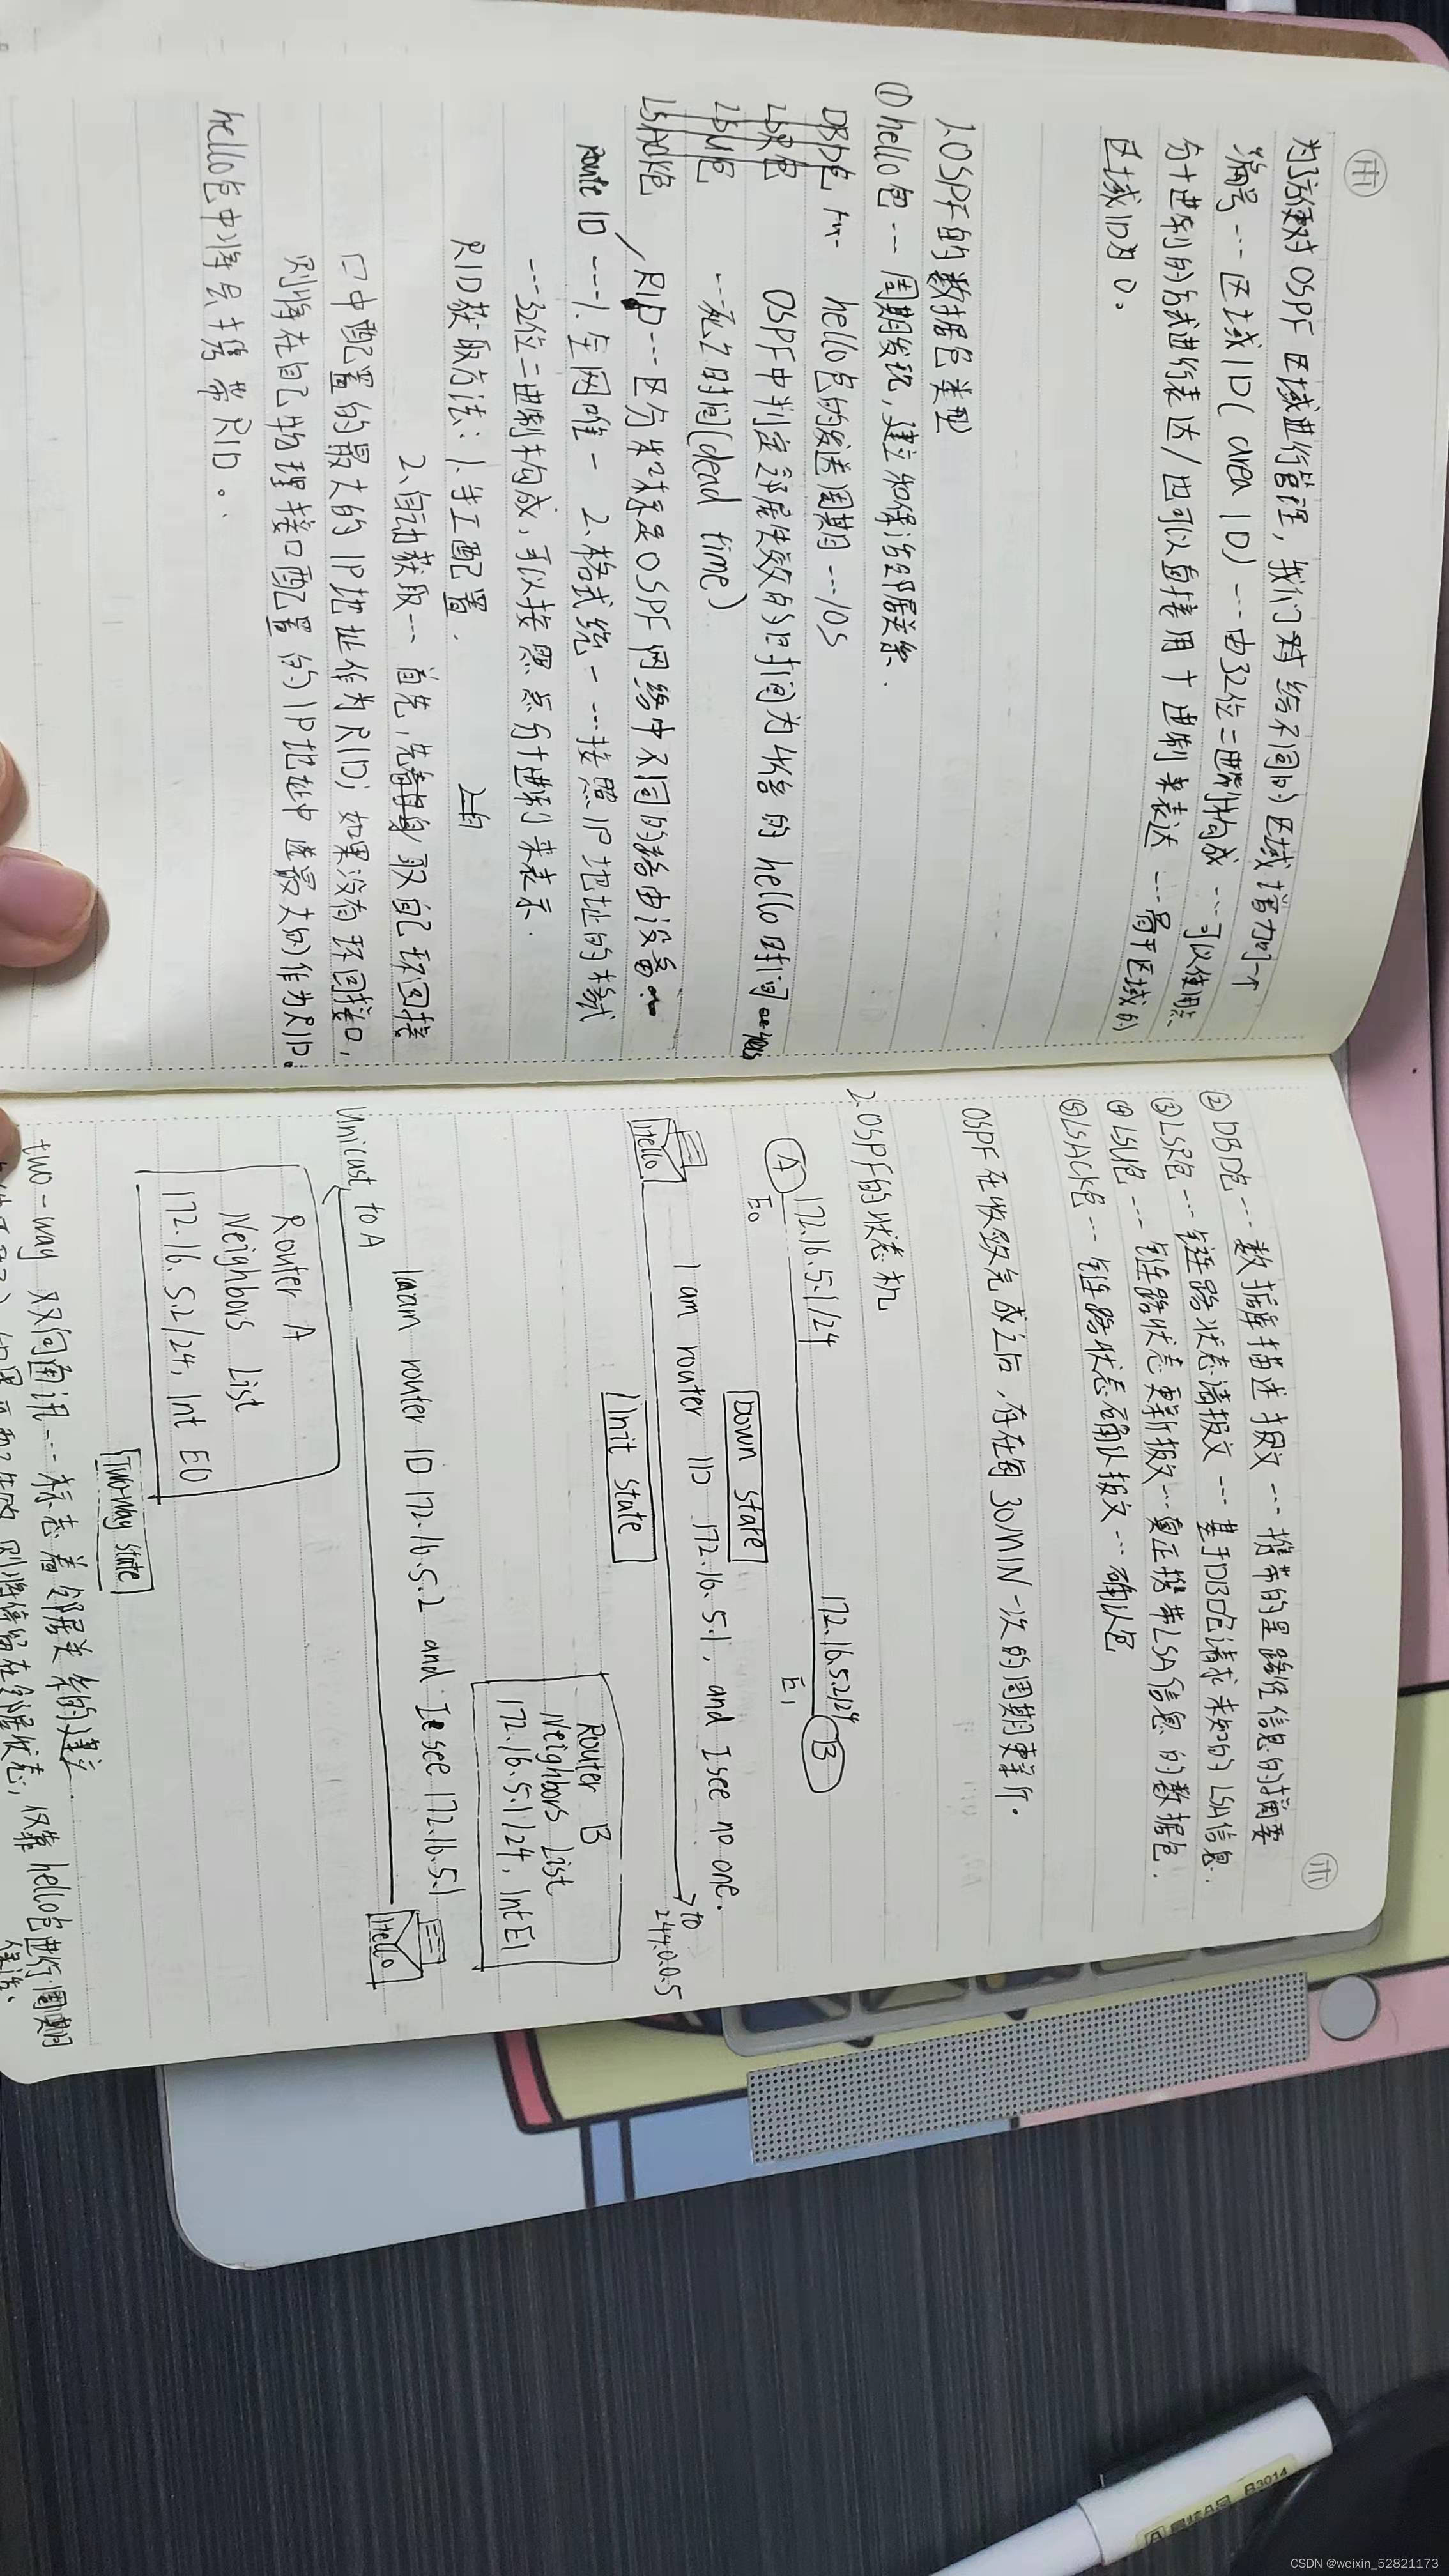 为了方便对OSPF区域进行管理，我们对给不同的区域增加了一个
编号---区域ID(area ID)---由32位二进制构成---可以使用点
分十进制的方式进行表达/也可以直接用十进制来表达---骨干区域的
区域ID为0。
1.OSPF的数据包类型
①hello包---周期发现,建立和保活邻居关系.
DBD包 hello包的发送周期---10S
LSR包 OSPF中判定邻居失效的时间为4倍的hello时间
LSU包 ---死亡时间(dead time)
LSACK包 RID---区分和标定OSPF网络中不同的路由设备.
Route ID ---1.全网唯一 2.格式统一---按照IP地址的格式
---32位二进制构成,可以按照点分十进制来表示.
RID获取方法:1.手工配置.
2.自
2.自动获取---首先,先看自身取自己环回接
口中配置的最大的IP地址作为RID;如果没有环回接口,
则将在自己物理接口配置的IP地址中选最大的作为RID.
hello包中将会携带RID.
②DBD包---数据库描述报文---携带的是路径信息的摘要
③LSR包---链路状态请报文---基于DBD包请求未知的LSA信息.
④LSU包---链路状态更新报文---真正携带LSA信息的数据包.
⑤LSACK包---链路状态确认报文---确认包
OSPF在收敛完成之后,存在每30MIN一次的周期更新.
2.OSPF的状态机
172.16.5.1/24 172.16.5.2/24
A B
E0 E1
Down state
I am router ID 172.16.5.1, and I see no one.
Hello
to
244.0.0.5
Init state
Router B
Neighbors List
172.16.5.1/24, Int E1
I am router ID 172.16.5.2 and I see 172.16.5.1
Unicast to A
Hello
Router A
Neighbors List
172.16.5.2/24, Int E0
Two-way state
two-way 双向通讯---标志着邻居关系的建立.
则将停留在邻居状态,仅靠hello包进行周期
保活.
A B3014
CSDN @weixin_52821173